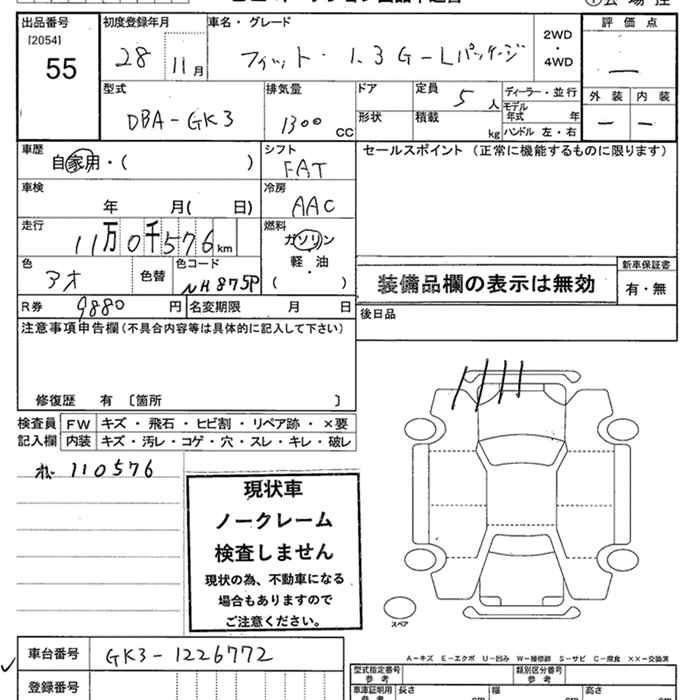 出品番号 初度登録年月 車名・グレード 評価点
[2054]
55 28 11月 フィット・1.3G-Lパッケージ 2WD・4WD —
型式 排気量 ドア 定員 ディーラー・並行 外装 内装
DBA-GK3 1300cc 5人 モデル年式 年 — —
形状 積載 kg ハンドル 左・右
車歴 シフト セールスポイント (正常に機能するものに限ります)
自家用・( ) FAT
車検 冷房
年 月( 日) AAC
走行 燃料
11万0千576km ガソリン
軽・油
( )
色 色替 色コード 新車保証書
アオ NH875P 装備品欄の表示は無効 有・無
R券 9880円 名変期限 月 日 後日品
注意事項申告欄(不具合内容等は具体的に記入して下さい)
修復歴 有 〔箇所 〕
検査員 FW キズ・飛石・ヒビ割・リペア跡・×要
記入欄 内装 キズ・汚レ・コゲ・穴・スレ・キレ・破レ
110576
現状車
ノークレーム
検査しません
現状の為、不動車になる
場合もありますので
ご注意ください。
スペア
A-キズ E-エクボ U-凹み W-補修跡 S-サビ C-腐食 ××-交換済
車台番号 GK3-1226772 型式指定番号 参考 類別区分番号 参考
登録番号 車庫証明用 参考 長さ cm 幅 cm 高さ cm